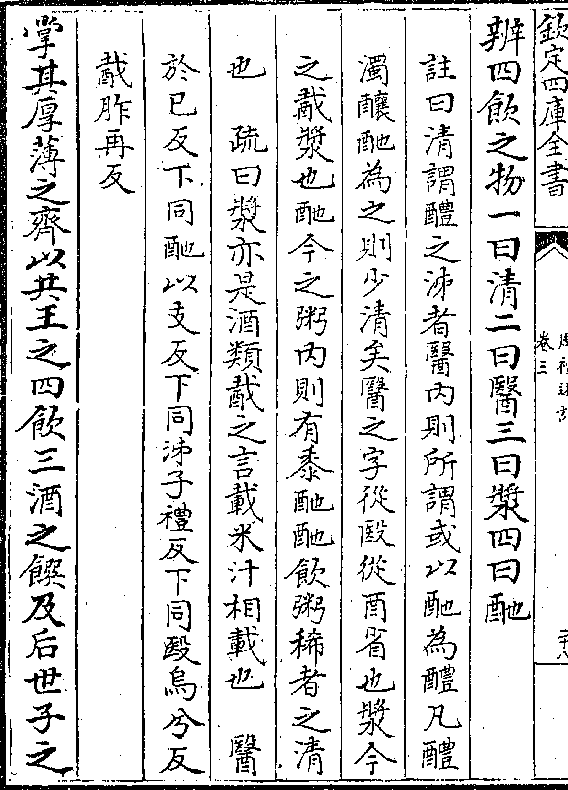 欽定四庫全書
卷三
辨四飲之物一曰清二曰醫三曰漿四曰酏
註曰清謂醴之泲者醫内則所謂或以酏為醴凡醴
濁釀酏為之則少清矣醫之字從殹從酉省也漿今
之酨漿也酏今之粥内則有黍酏酏飲粥稀者之清
也　疏曰漿亦是酒類酨之言載米汁相載也　醫
於已反下同酏以支反下同泲子禮反下同殹烏兮反
酨胙再反
掌其厚薄之齊以共王之四飲三酒之饌及后世子之